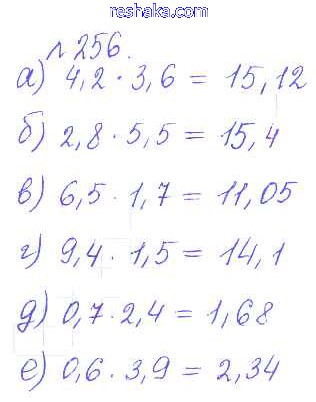 reshaka.com
л 256.
а) 4,2 · 3,6 = 15,12
б) 2,8 · 5,5 = 15,4
в) 6,5 · 1,7 = 11,05
г) 9,4 · 1,5 = 14,1
д) 0,7 · 2,4 = 1,68
е) 0,6 · 3,9 = 2,34